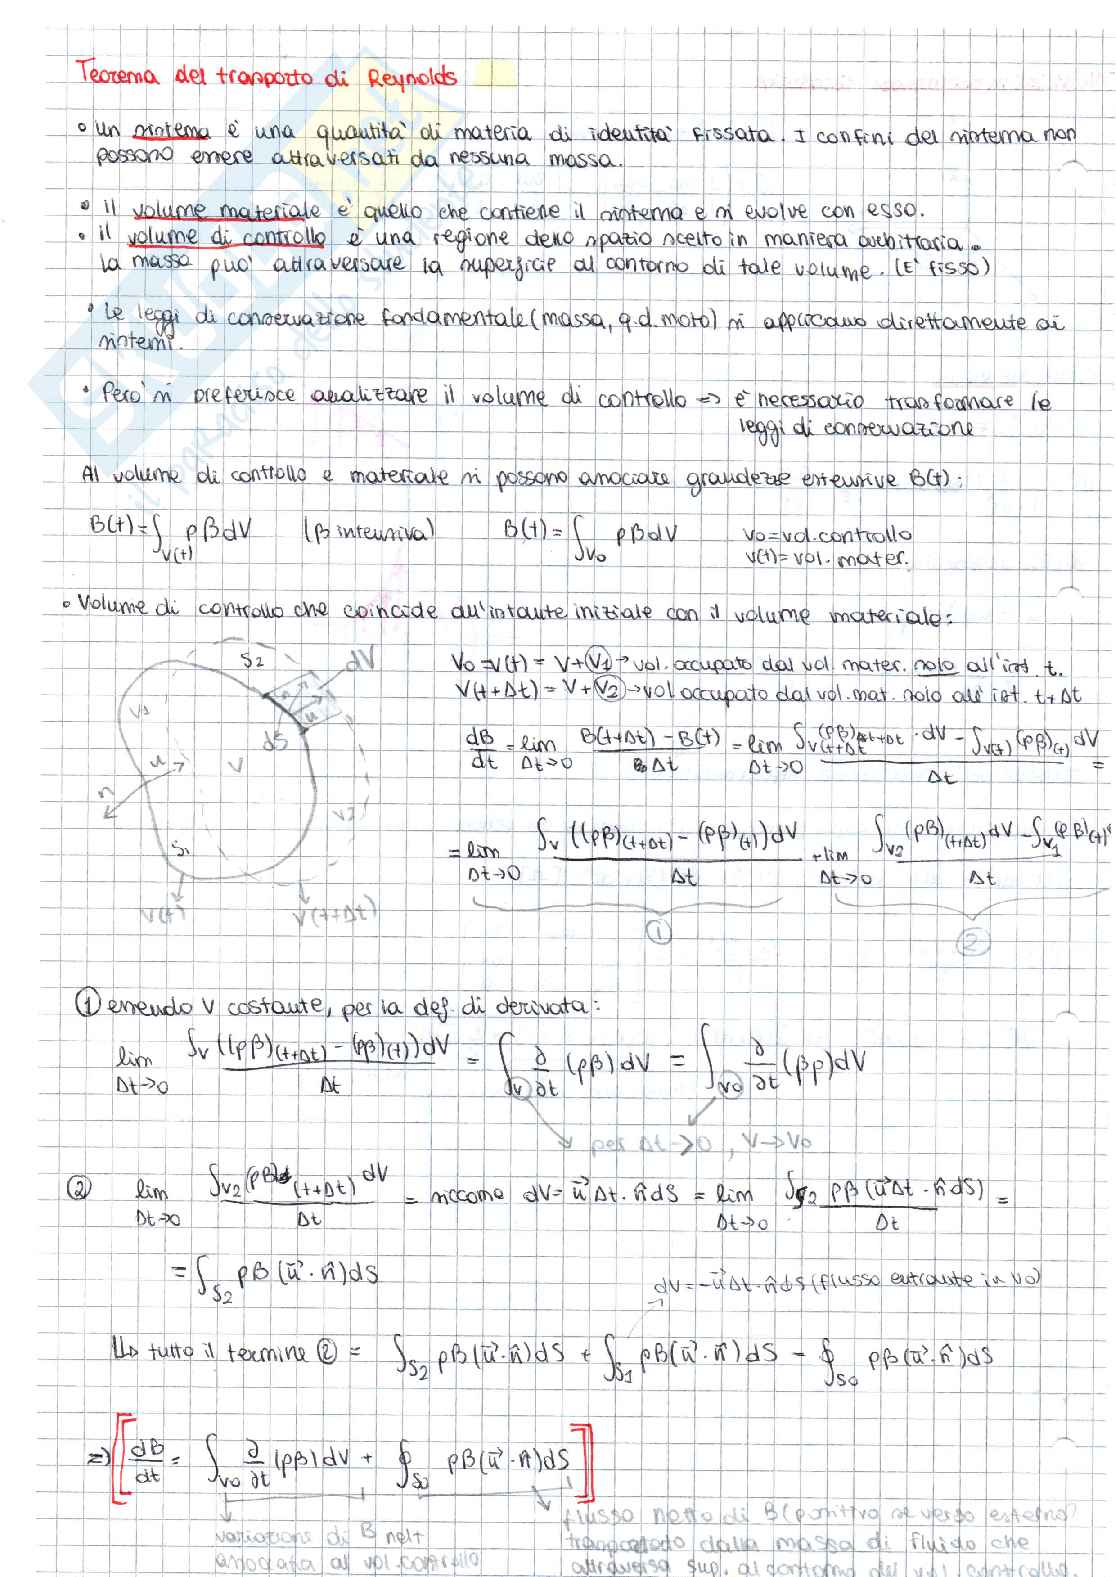 Teorema del trasporto di Reynolds
• Un sistema è una quantità di materia di identità fissata. I confini del sistema non
possono essere attraversati da nessuna massa.
• il volume materiale è quello che contiene il sistema e si evolve con esso.
• il volume di controllo è una regione dello spazio scelto in maniera arbitraria.
la massa può attraversare la superficie al contorno di tale volume. (E' fisso)
• Le leggi di conservazione fondamentale (massa, q.d.moto) si applicano direttamente ai
sistemi.
• Però si preferisce analizzare il volume di controllo => è necessario trasformare le
leggi di conservazione
Al volume di controllo e materiale si possono associare grandezze estensive B(t):
B(t)=∫V(t) ρβdV (β intensiva) B(t)=∫V0 ρβdV V0=vol.controllo
V(t)=vol.mater.
• Volume di controllo che coincide all'istante iniziale con il volume materiale:
S2 dV
V0=V(t) = V+V1 → vol. occupato dal vol. mater. solo all'ist. t.
V(t+Δt) = V+V2 → vol occupato dal vol. mat. solo all'ist. t+Δt
V1 n u dS V u n V2 S1
dB/dt = lim Δt→0 B(t+Δt) - B(t) / Δt = lim Δt→0 ∫V(t+Δt) (ρβ)t+Δt · dV - ∫V(t) (ρβ)(t) dV / Δt =
= lim Δt→0 ∫V ((ρβ)(t+Δt) - (ρβ)(t))dV / Δt + lim Δt→0 ∫V2 (ρβ)(t+Δt) dV - ∫V1 (ρβ)(t) / Δt
V(t) V(t+Δt)
① ②
① essendo V costante, per la def. di derivata:
lim Δt→0 ∫V ((ρβ)(t+Δt) - (ρβ)(t))dV / Δt = ∫V ∂/∂t (ρβ)dV = ∫V0 ∂/∂t (βρ)dV
per Δt→0, V→V0
② lim Δt→0 ∫V2 (ρβ)(t+Δt) dV / Δt = siccome dV= u⃗ Δt · n̂ dS = lim Δt→0 ∫S2 ρβ(u⃗Δt · n̂dS) / Δt =
= ∫S2 ρβ(u⃗ · n̂)dS
dV=-u⃗Δt · n̂dS (flusso entrante in V0)
↳ tutto il termine ② = ∫S2 ρβ(u⃗ · n̂)dS + ∫S1 ρβ(u⃗ · n̂)dS = ∮S0 ρβ(u⃗ · n̂)dS
=> [dB/dt = ∫V0 ∂/∂t (ρβ)dV + ∮S0 ρβ(u⃗ · n̂)dS]
variazione di B
associata al vol.controllo
flusso netto di B (positivo se verso esterno)
trasportato dalla massa di fluido che
attraversa sup. al contorno del vol. controllo.